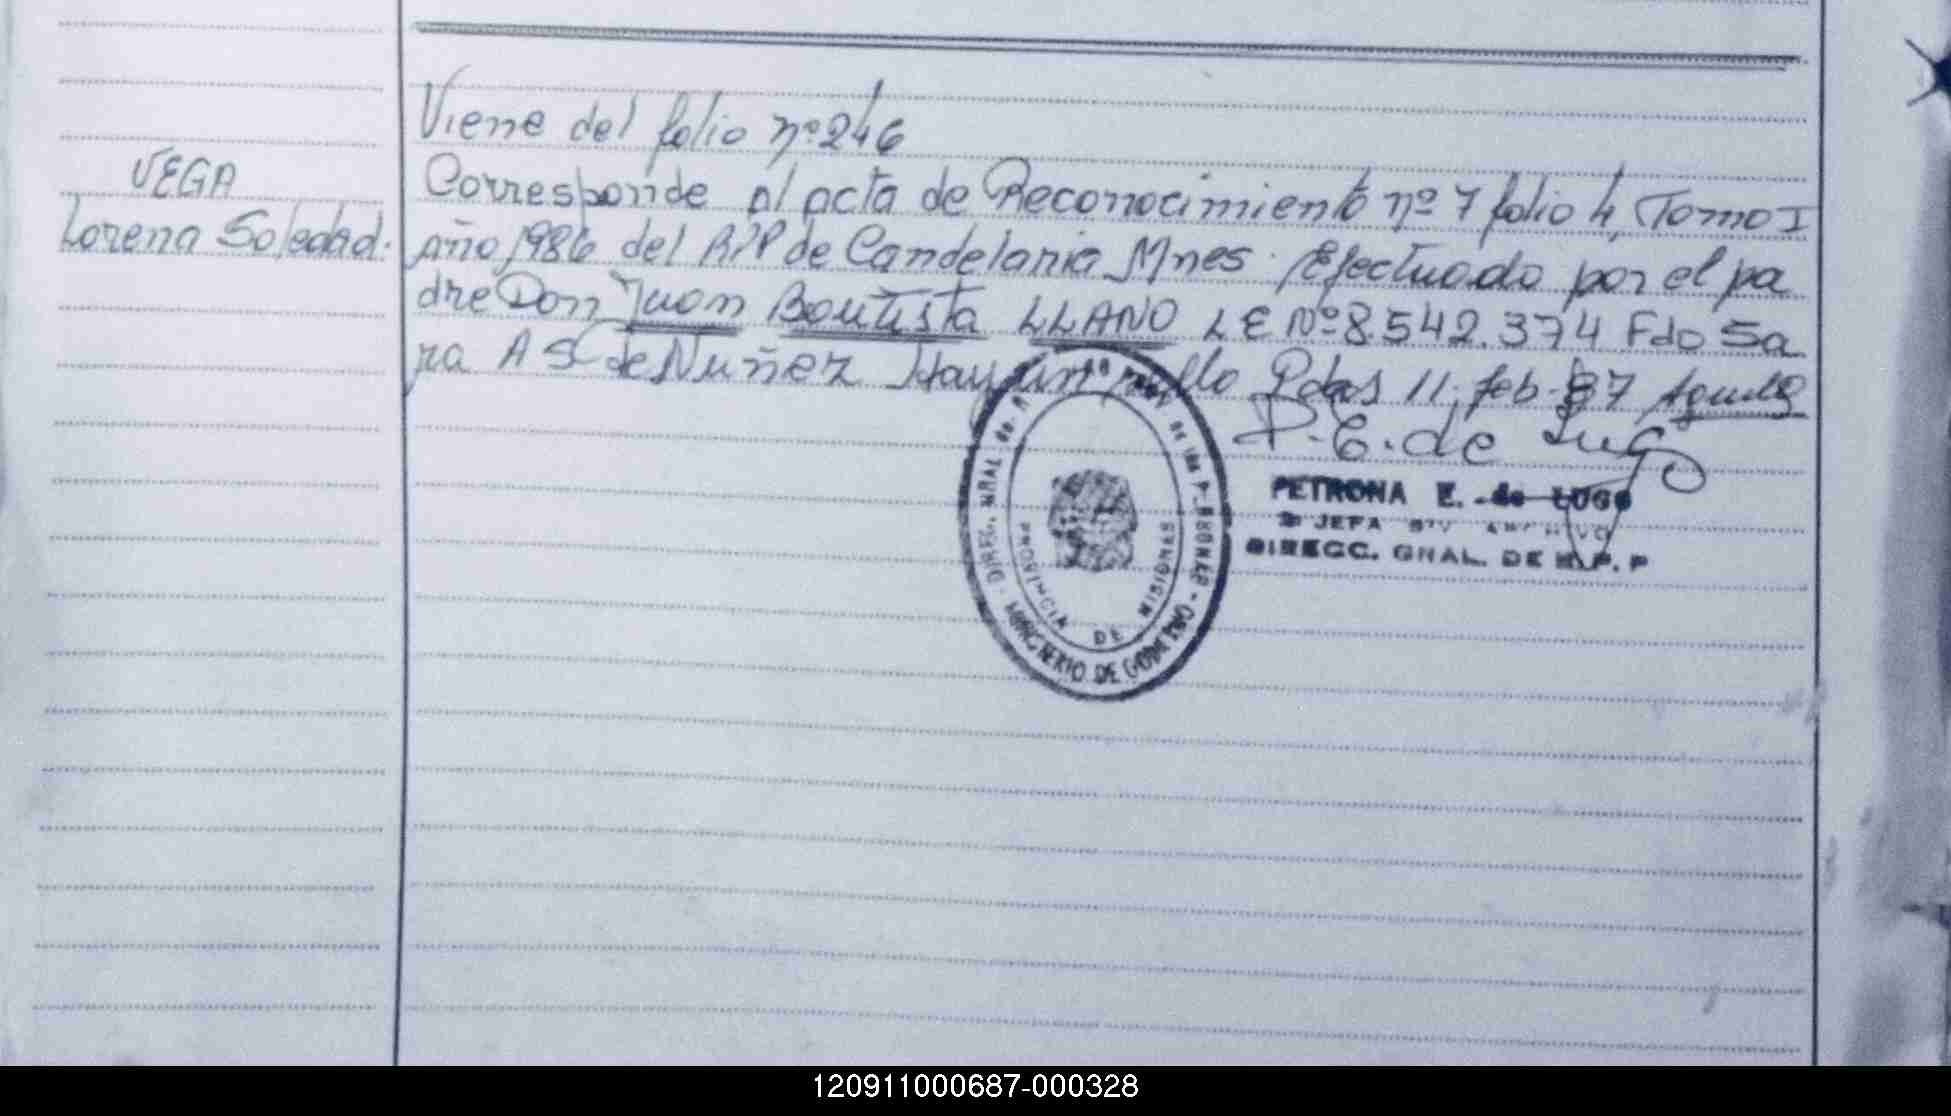 Viene del folio nº 246
VEGA
Lorena Soledad.
Corresponde al acta de Reconocimiento nº 7 folio 4, Tomo I
año 1986 del R.P.P de Candelaria Mnes. Efectuado por el pa
dre Don Juan Bautista LLANO L E Nº 8.542.374 Fdo Sa
ra A S de Nuñez Hay un sello Pdas 11, feb. 87
P. E. de Lugo
PETRONA E. de LUGO
JEFA ARCHIVO
DIRECC. GNAL. DE R.P.P
PROVINCIA DE MISIONES
MINISTERIO DE GOBIERNO
120911000687-000328